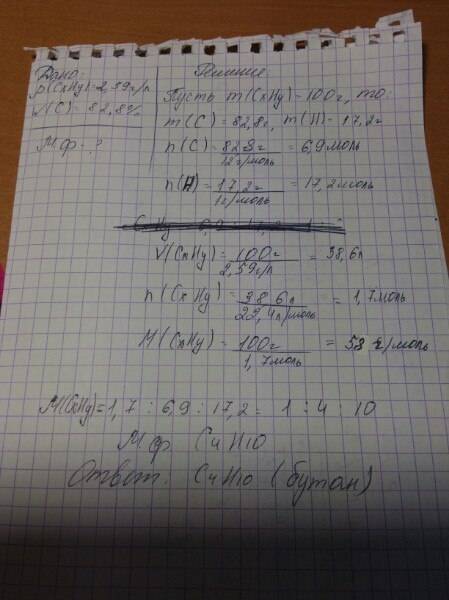 Дано:
ρ(CxHy)=2,59г/л
ω(C)=82,8%
Мф.-?
Решение:
Пусть m(CxHy)=100г, то:
m(C)=82,8г, m(H)=17,2г
n(C)=82,8г/12г/моль=6,9моль
n(H)=17,2г/1г/моль=17,2моль
V(CxHy)=100г/2,59г/л=38,6л
n(CxHy)=38,6л/22,4л/моль=1,7моль
M(CxHy)=100г/1,7моль=58г/моль
M(CxHy)=1,7:6,9:17,2=1:4:10
Мф. C4H10
Ответ. C4H10 (бутан)